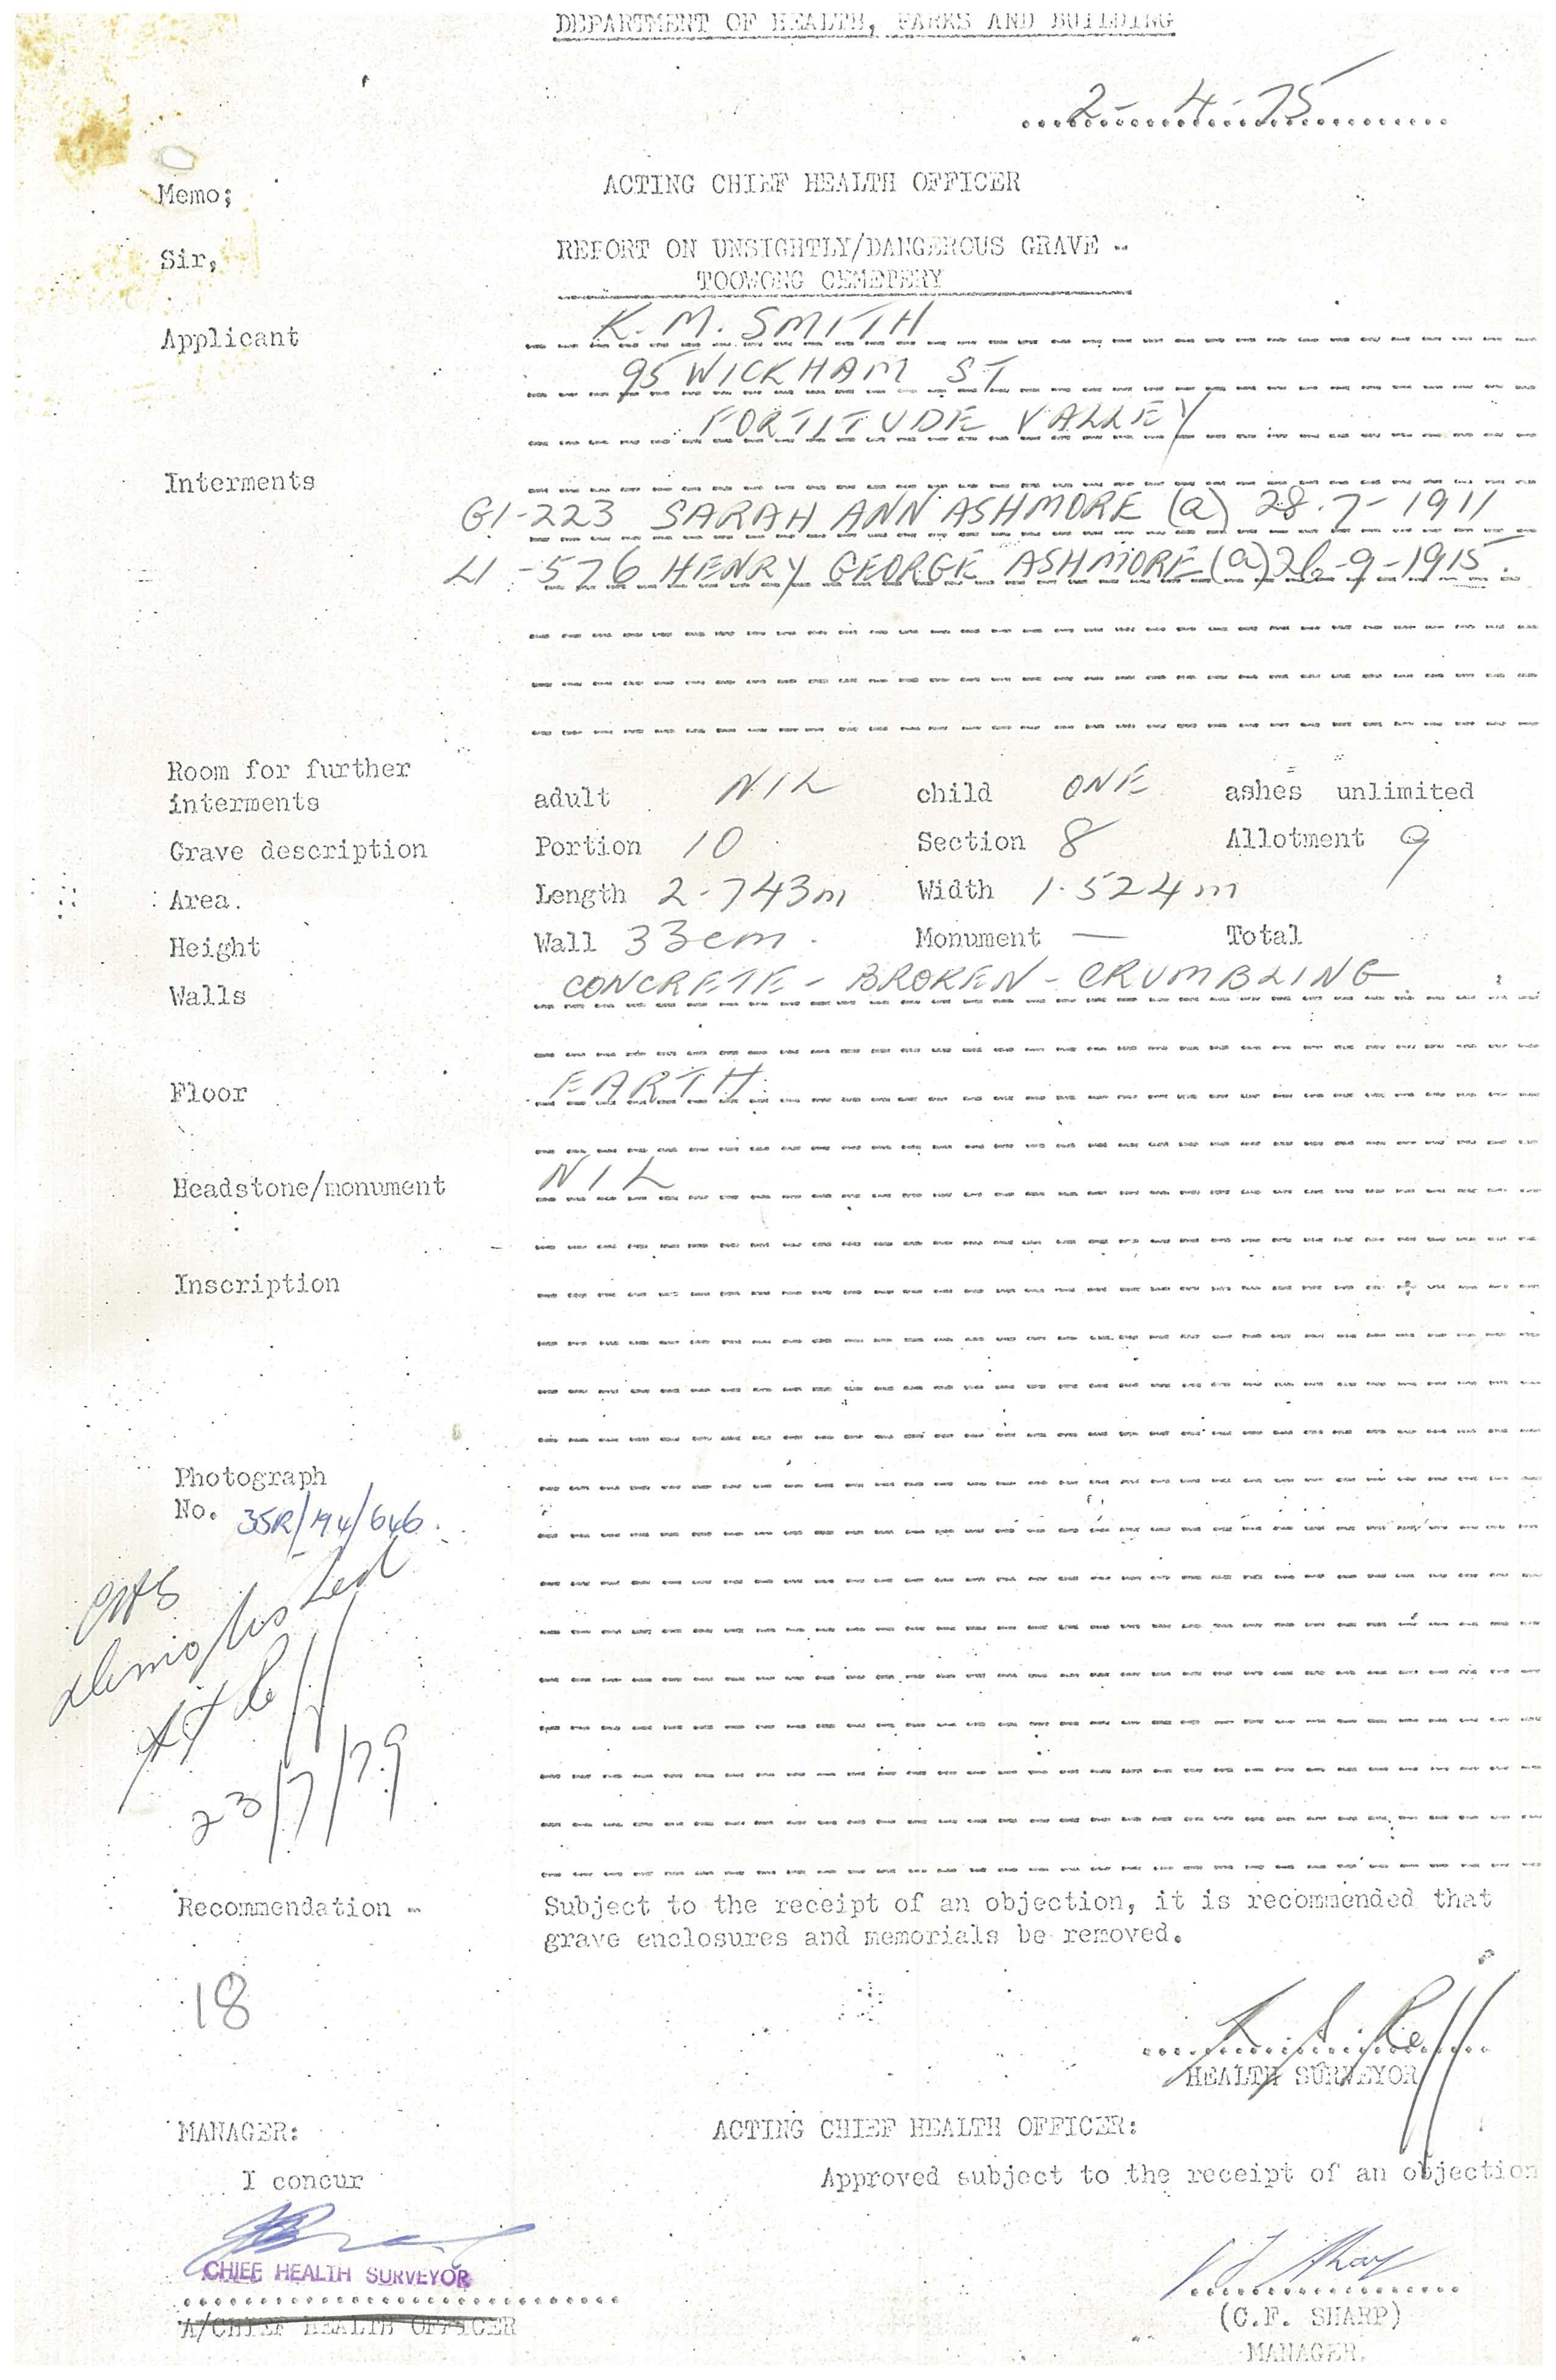 DEPARTMENT OF HEALTH, PARKS AND BUILDING
2-4-75
Memo; ACTING CHIEF HEALTH OFFICER
Sir, REPORT ON UNSIGHTLY/DANGEROUS GRAVE -
TOOWONG CEMETERY
Applicant K. M. SMITH
95 WICKHAM ST
FORTITUDE VALLEY
Interments
G1-223 SARAH ANN ASHMORE (a) 28.7-1911
L1-576 HENRY GEORGE ASHMORE (a) 26-9-1915.
Room for further
interments adult NIL child ONE ashes unlimited
Grave description Portion 10 Section 8 Allotment 9
Area. Length 2.743m Width 1.524m
Height Wall 33cm. Monument — Total
Walls CONCRETE - BROKEN - CRUMBLING
Floor EARTH.
Headstone/monument NIL
Inscription
Photograph
No. 35R/194/646.
demolished
23/7/79
Recommendation - Subject to the receipt of an objection, it is recommended that
grave enclosures and memorials be removed.
18
HEALTH SURVEYOR
MANAGER: ACTING CHIEF HEALTH OFFICER:
I concur Approved subject to the receipt of an objection
CHIEF HEALTH SURVEYOR
A/CHIEF HEALTH OFFICER
(C.F. SHARP)
MANAGER.